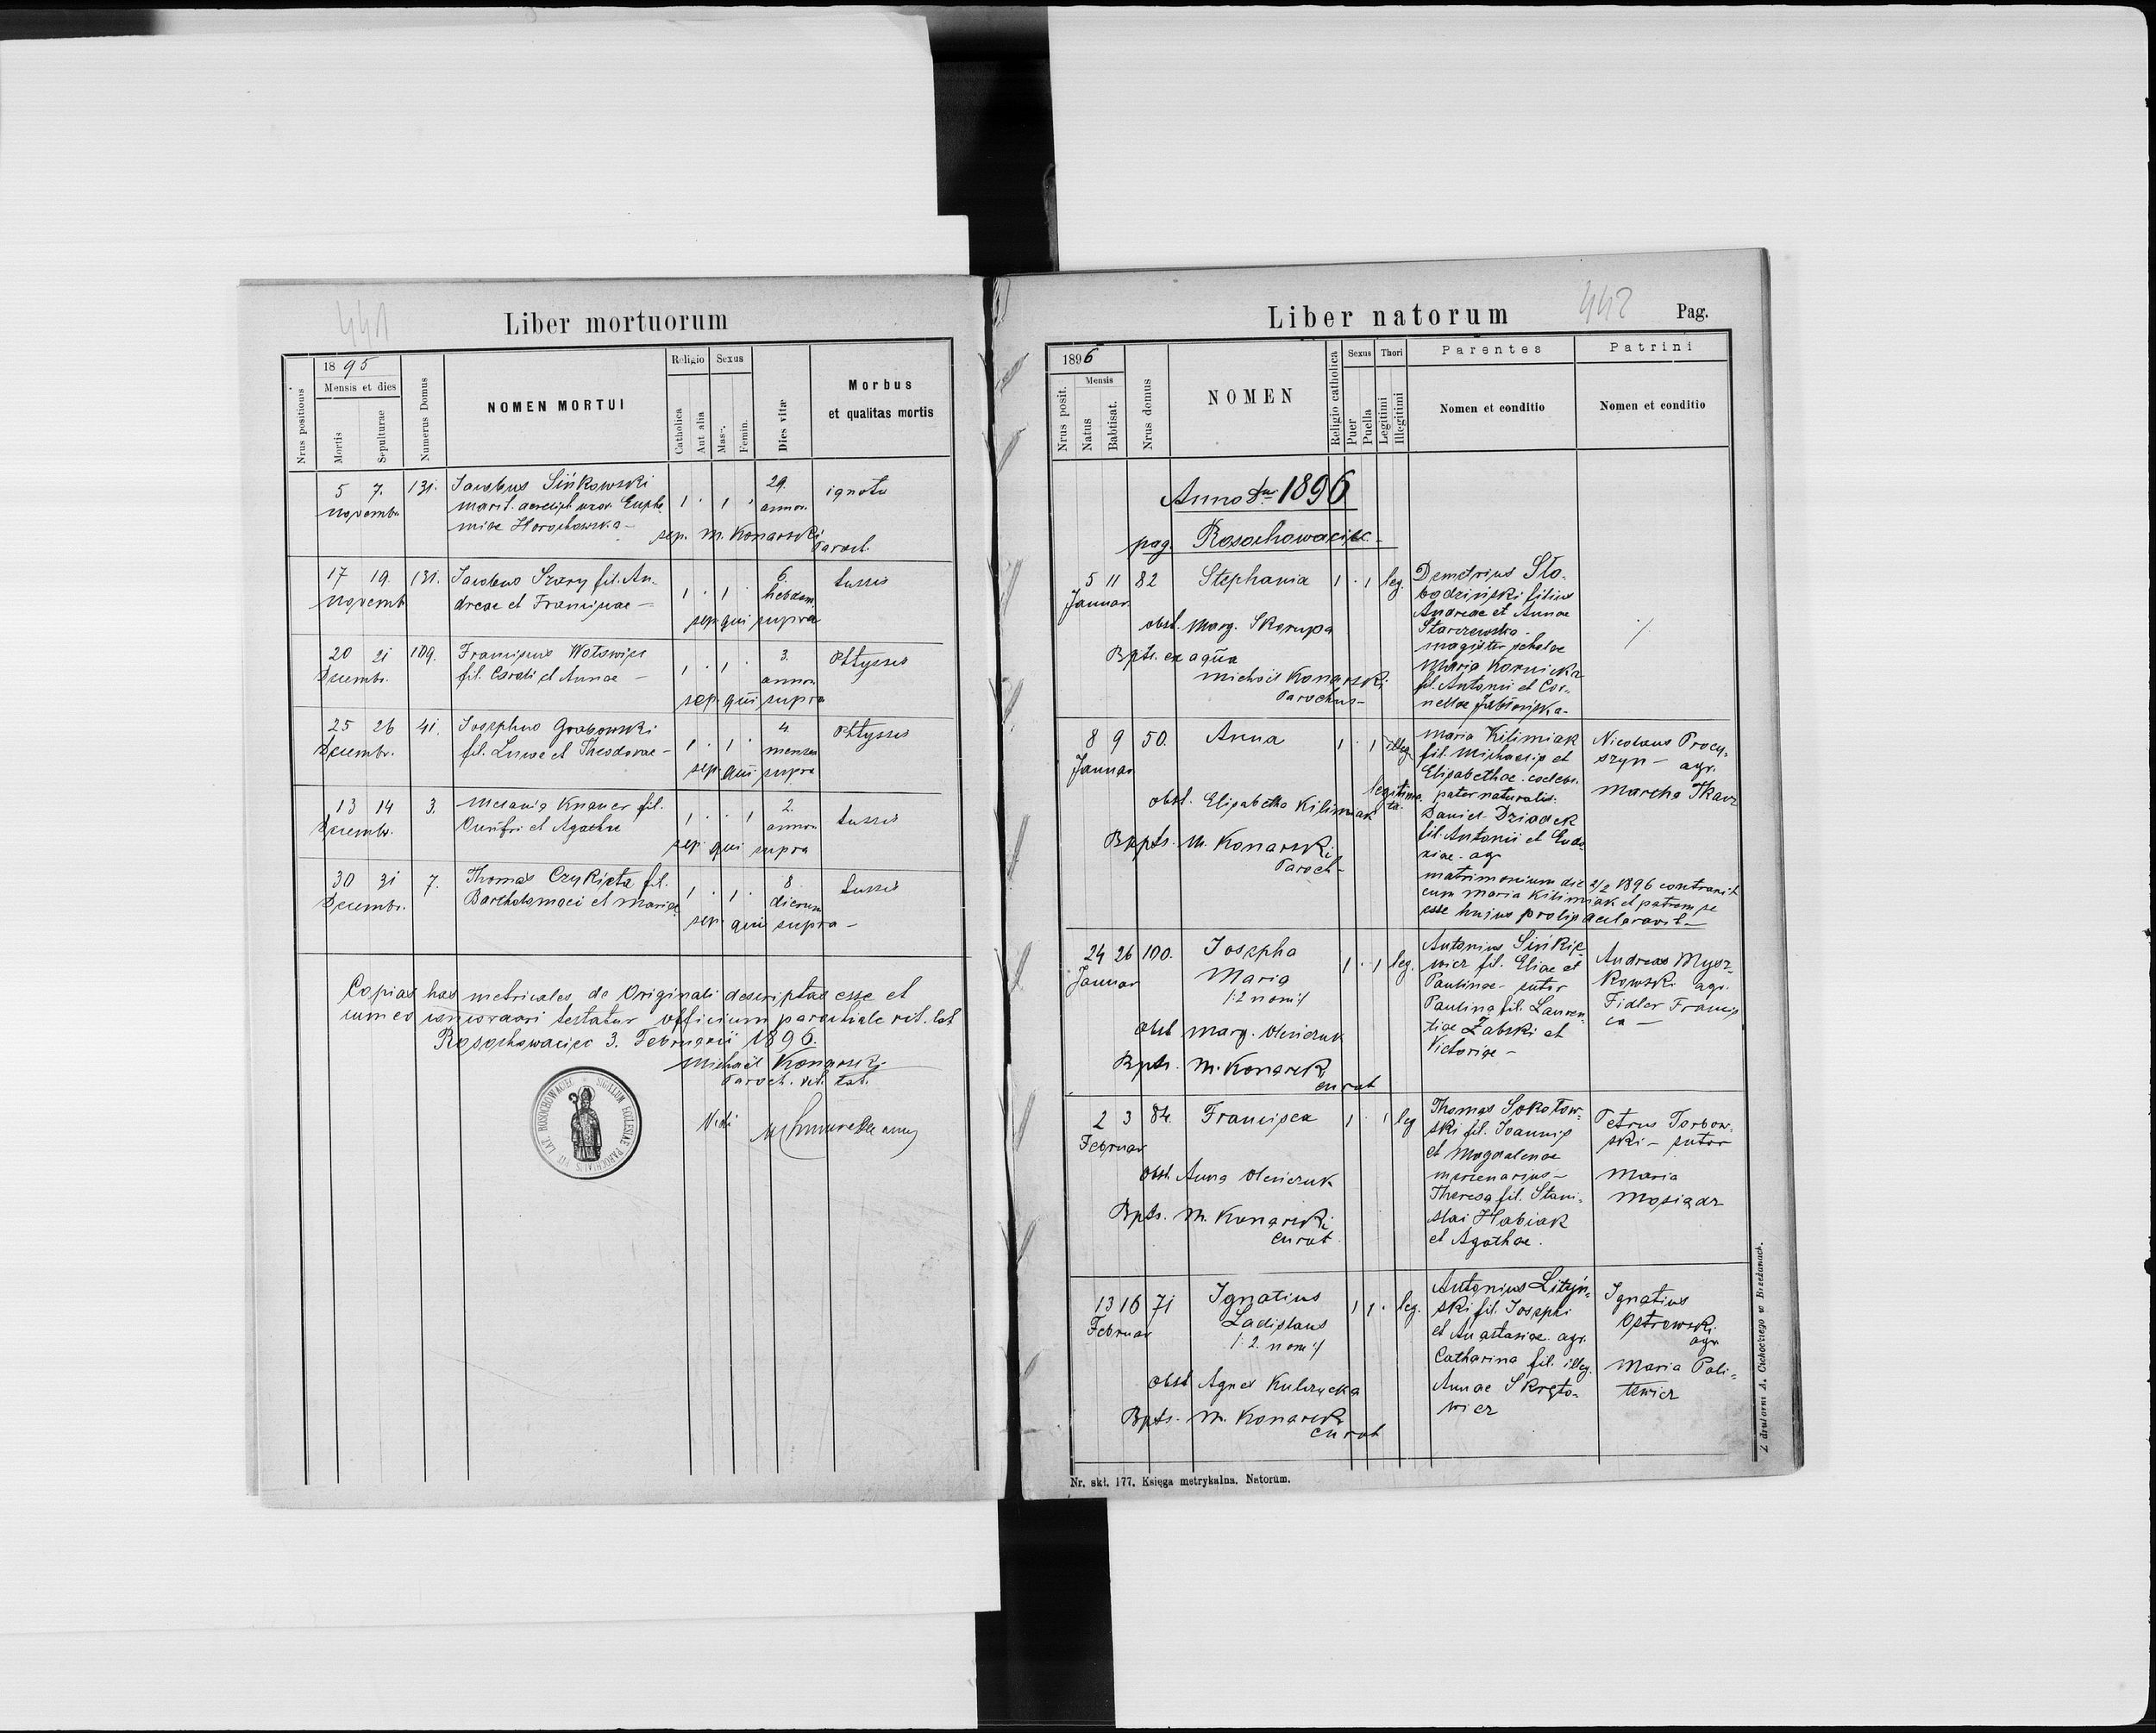 441
Liber mortuorum
Nrus positionis
1895
Mensis et dies
Mortis
Sepulturae
Numerus Domus
NOMEN MORTUI
Religio
Catholica
Aut alia
Sexus
Mas.
Femin.
Dies vitæ
Morbus
et qualitas mortis
5 7. 131. Jacobus Sińkowski 29. ignota
Novembr. marit. uxor. Euphe 1 . 1 . annor.
miae Horochowska —
sep. M. Konarski
Paroch.
17 19. 131. Jacobus Szary fil. An- 6. tussis
Novemb. dreae et Franciscae — 1 . 1 . hebdom.
sep. qui supra
20 21 109. Franciscus Wotowicz 3. Phtyssis
Decembr. fil. Caroli et Annae — 1 . 1 . annor.
sep. qui supra
25 26 41. Josephus Grabowski 4. Phtyssis
Decembr. fil. Lucae et Theodorae — 1 . 1 . menses
sep. qui supra
13 14 3. Melania Knauer fil. 2. tussis
Decembr. Onufri et Agathae 1 . . 1 annor.
sep. qui supra
30 31 7. Thomas Czykieta fil. 8 tussis
Decembr. Bartholomaei et Mariae 1 . 1 . dierum
sep. qui supra —
Copias has metricales de Originali descriptas esse et
cum eo testatur officium parochiale rit. lat
Rosochowaciec 3. Februarii 1896.
Michael Konarski
Paroch. rit. lat.
SIGILLUM ECCLESIAE PAROCHIALIS RIT. LAT. ROSOCHOWACIEC
Vidi
Liber natorum
442
Pag.
1896
Nrus posit.
Mensis
Natus
Babtisat.
Nrus domus
NOMEN
Religio catholica
Sexus
Puer
Puella
Thori
Legitimi
Illegitimi
Parentes
Nomen et conditio
Patrini
Nomen et conditio
Anno Dni 1896
pag. Rosochowaciec
5 11 82 Stephania 1 . 1 leg.
Januar.
obst. Marg. Skorupa
Bpts. ex aqua
Michael Konarski
Parochus —
Demetrius Sło-
bodziński filius
Andreae et Annae
Starzewska -
magister scholae
Maria Kornicka
fil. Antonii et Cor-
neliae Jabłońska -
8 9 50. Anna 1 . 1 illeg.
Januar
legitima-
ta.
obst. Elisabetha Kilimniak
Bapts. M. Konarski
Paroch —
Maria Kilimiak
fil. Michaelis et
Elisabethae coelebs.
pater naturalis:
Daniel Dziadek
fil. Antonii et Eudo-
xiae. agr
matrimonium die 2/2 1896 contraxit
cum Maria Kilimiak et patrem se
esse hujus prolis declaravit —
Nicolaus Procy-
szyn — agr.
Martha Tkacz
24 26 100. Josepha 1 . 1 leg.
Januar Maria
/:2 nom:/
obst Marg. Olenczuk
Bpts. M. Konarski
curat
Antonius Sińkie-
wicz fil. Eliae et
Paulinae — sutor
Paulina fil. Lauren-
tiae Żabski et
Victoriae —
Andreas Mysz-
kowski agr.
Fidler Francis
ca —
2 3 84. Francisca 1 . 1 leg
Februar
obst. Anna Olenczuk
Bpts. M. Konarski
curat
Thomas Sokołow-
ski fil. Joannis
et Magdalenae
mercenarius —
Theresa fil. Stani-
slai Habiak
et Agathae.
Petrus Torbow-
ski — sutor
Maria
Mosiądz
13 16 71 Ignatius 1 1 . leg.
Februar Ladislaus
/:2. nom:/
obst Agnes Kulczycka
Bpts. M. Konarski
curat
Antonius Lityń-
ski fil. Josephi
et Anastasiae agr.
Catharina fil. illeg.
Annae Skręto-
wicz
Ignatius
Ostrowski
agr
Maria Pali-
tewicz
Nr. skł. 177. Księga metrykalna. Natorum.
Z drukarni A. Cichockiego w Brzeżanach.